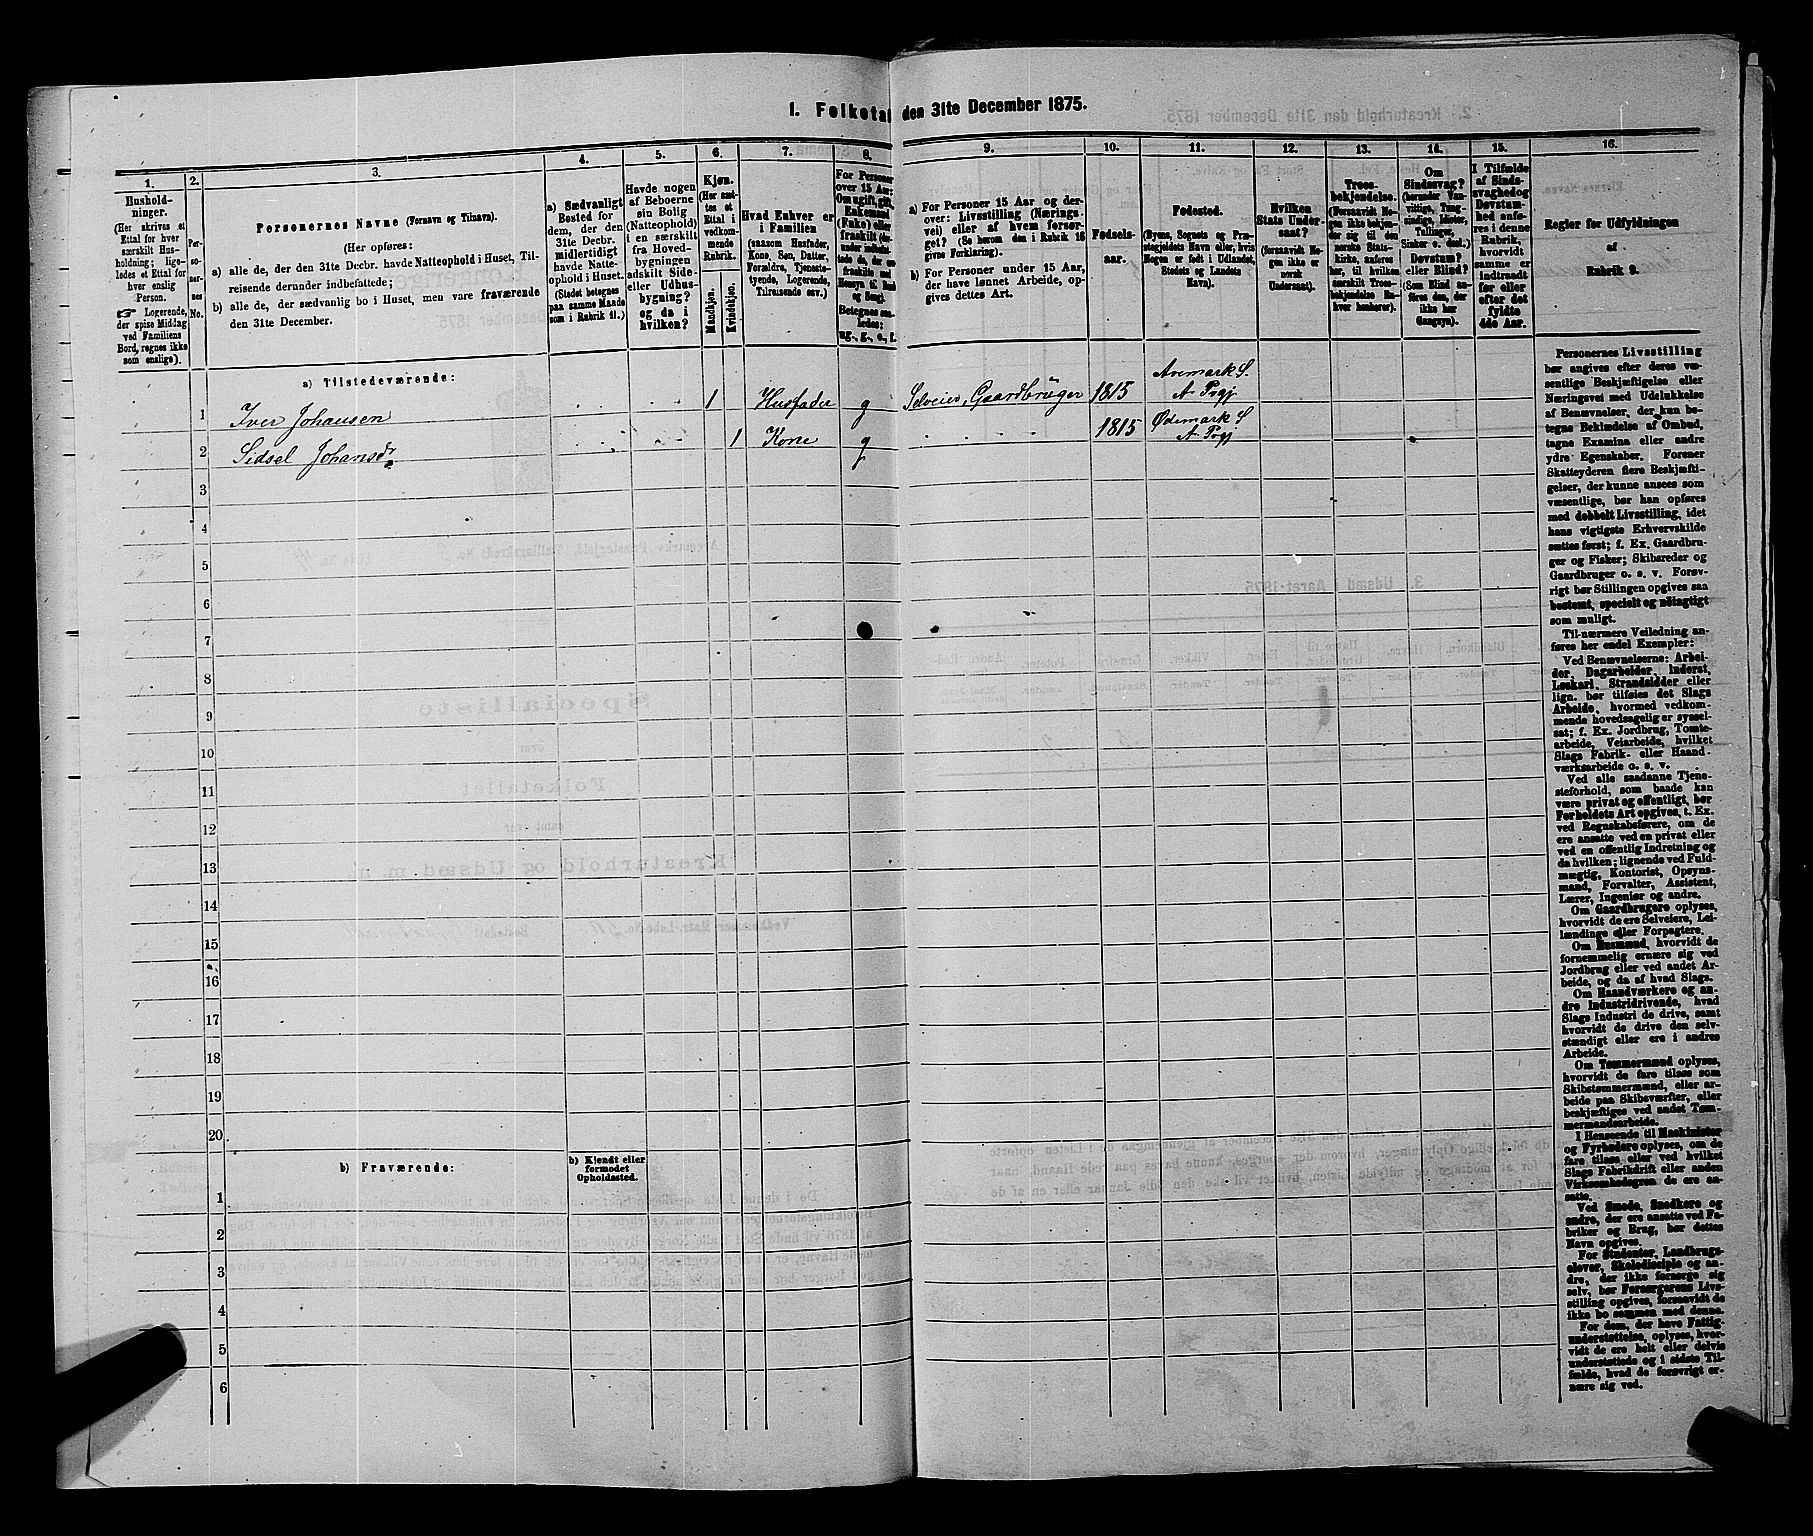 1. Folketal den 31te December 1875.
1.
2.
3.
4.
5.
6.
7.
8.
9.
10.
11.
12.
13.
14.
15.
16.
Hushold-
ninger.
(Her skrives et
Ettal for hver
særskilt Hus-
holdning; lige-
ledes et Ettal for
hver enslig
Person.
☞ Logerende,
der spise Middag
ved Familiens
Bord, regnes ikke
som enslige).
Per-
so-
ner-
nes
No.
Personernes Navne (Fornavn og Tilnavn).
(Her opføres:
a) alle de, der den 31te Decbr. havde Natteophold i Huset, Til-
reisende derunder indbefattede;
b) alle de, der sædvanlig bo i Huset, men vare fraværende
den 31te December.
a) Sædvanligt
Bosted for
dem, der den
31te Decbr.
midlertidigt
havde Natte-
ophold i Huset.
(Stedet betegnes
paa samme Maade
som i Rubrik 11.)
Havde nogen
af Beboerne
sin Bolig
(Natteophold)
i en særskilt
fra Hoved-
bygningen
adskilt Side-
eller Udhus-
bygning?
og da i
hvilken?
Kjøn.
(Her sæt-
tes et
Ettal i
vedkom-
mende
Rubrik.
Mandkjøn.
Kvindekjøn.
Hvad Enhver er
i Familien
(saasom Husfader,
Kone, Søn, Datter,
Forældre, Tjeneste-
tyende, Logerende,
Tilreisende osv.)
For Personer
over 15 Aar:
Om ugift, gift,
Enkemand
(Enke) eller
fraskilt
Betegnes saa-
ledes:
ug., g., e., f.
a) For Personer 15 Aar og der-
over: Livsstilling (Nærings-
vei) eller af hvem forsør-
get? (Se herom den i Rubrik 16
givne Forklaring).
b) For Personer under 15 Aar,
der have lønnet Arbeide, op-
gives dettes Art.
Fødsels-
aar.
Fødested.
(Byens, Sognets og Præ-
stegjeldets Navn eller, hvis
Nogen er født i Udlandet,
Stedets og Landets
Navn).
Hvilken
Stats Under-
saat?
(forsaavidt No-
gen ikke er
norsk
Undersaat).
Troes-
bekjendelse.
(Forsaavidt No-
gen ikke bekjen-
der sig til den
norske Stats-
kirke, anføres
her, til hvilken
særskilt Troes-
bekjendelse En-
hver henhører).
Om
Sindssvag?
(herunder Van-
vittige, Tung-
sindige, Idioter,
Tullinger,
Sinker o. desl.)
Døvstum?
eller Blind?
(Som Blind an-
føres den, der
ikke har
Gangsyn).
I Tilfælde
af Sinds-
svaghed og
Døvstum-
hed anfø-
res i denne
Rubrik,
hvorvidt
samme er
indtraadt
før eller
efter det
fyldte
4de Aar.
Regler for Udfyldningen
af
Rubrik 9.
a) Tilstedeværende:
1 Iver Johansen 1 Husfader g Selveier, Gaardbruger 1815 Aremark S. A. Prgj
2 Sidsel Johansdr 1 Kone g 1815 Ødemark S A. Prgj
3
4
5
6
7
8
9
10
11
12
13
14
15
16
17
18
19
20
b) Fraværende:
b) Kjendt eller
formodet
Opholdssted.
1
2
3
4
5
6
Personernes Livsstilling
bør angives efter deres væ-
sentlige Beskjæftigelse eller
Næringsvei med Udelukkelse
af Benævnelser, der kun be-
tegne Beklædelse af Ombud,
tagne Examina eller andre
ydre Egenskaber. Forener
Skatteyderen flere Beskjæfti-
gelser, der kunne ansees som
væsentlige, bør han opføres
med dobbelt Livsstilling, idet
hans vigtigste Erhvervskilde
sættes først; f. Ex. Gaardbru-
ger og Fisker; Skibsreder og
Gaardbruger o. s. v. Forøv-
rigt bør Stillingen opgives saa
bestemt, specielt og nøiagtigt
som muligt.
Til nærmere Veiledning an-
føres her endel Exempler:
Ved Benævnelserne: Arbei-
der, Dagarbeider, Inderst,
Løskarl, Strandsidder eller
lign. bør tilføies det Slags
Arbeide, hvormed vedkom-
mende hovedsagelig er syssel-
sat; f. Ex. Jordbrug, Tomte-
arbeide, Veiarbeide, hvilket
Slags Fabrik- eller Haand-
værksarbeide o. s. v.
Ved alle saadanne Tjene-
steforhold, som baade kan
være privat og offentligt, bør
Forholdets Art opgives, t. Ex.
ved Regnskabsførere, om de
ere ansatte ved en privat eller
ved en offentlig Indretning og
da hvilken; lignende ved Fuld-
mægtig, Kontorist, Opsyns-
mand, Forvalter, Assistent,
Lærer, Ingeniør og andre.
Om Gaardbrugere oplyses,
hvorvidt de ere Selveiere, Lei-
lændinge eller Forpagtere.
Om Husmænd, hvorvidt de
fornemmelig ernære sig ved
Jordbrug eller ved andet Ar-
beide, og da af hvad Slags.
Om Haandværkere og an-
dre Industridrivende, hvad
Slags Industri de drive, samt
hvorvidt de drive den selv-
stændigt eller ere i andres
Arbeide.
Om Tømmermænd oplyses,
hvorvidt de fare tilsøs som
Skibstømmermænd, eller ar-
beide paa Skibsværfter, eller
beskjæftiges ved andet Tøm-
mermandsarbeide.
I Henseende til Maskinister
og Fyrbødere oplyses, om de
fare tilsøs eller ved hvilket
Slags Fabrikdrift eller anden
Virksomhedsgren de ere an-
satte.
Ved Smede, Snedkere og
andre, der ere ansatte ved Fa-
briker og Brug, bør dettes
Navn opgives.
For Studenter, Landbrugs-
elever, Skoledisciple og an-
dre, der ikke forsørge sig
selv, bør Forsørgerens Livs-
stilling opgives, forsaavidt de
ikke bo sammen med denne.
For dem, der have Fattig-
understøttelse, oplyses, hvor-
vidt de ere helt eller delvis
understøttede og i sidste Til-
fælde, hvad de forøvrigt er-
nære sig ved.